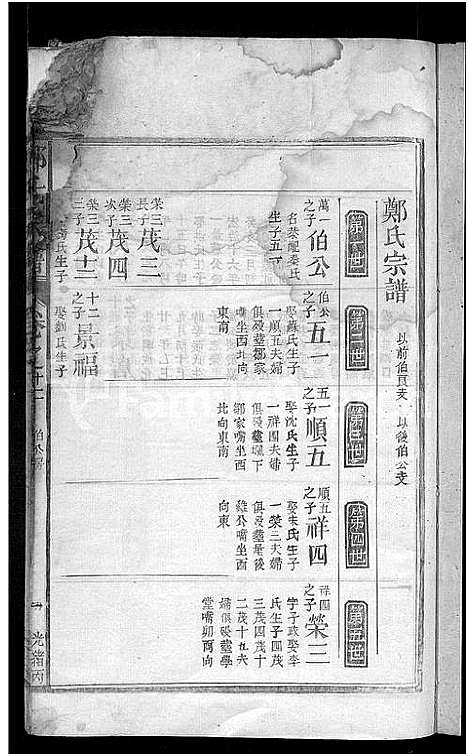 鄭氏宗譜
以前伯貢支 以後伯公支
第一世
第二世
第三世
第四世
第五世
萬一之子
伯公
名榮配姜氏
生子五一
伯公之子
五一
娶蘇氏生子
一順五夫婦
俱歿塟鄒家
嘴坐西北向
東南
五一之子
順五
娶沈氏生子
一祥四夫婦
俱歿塟塆下
鄒家嘴坐西
北向東南
順五之子
祥四
娶朱氏生子
一榮三夫婦
俱歿塟屋後
雞公嘴坐西
向東
祥四之子
榮三
字子政娶李
氏生子四茂
三茂四茂十
二茂十五夫
婦俱歿塟學
堂嘴卯酉向
榮三長子
茂三
榮三次子
茂四
榮三三子
茂十二
氏生子
十二之子
景福
娶劉氏生子
光緒丙